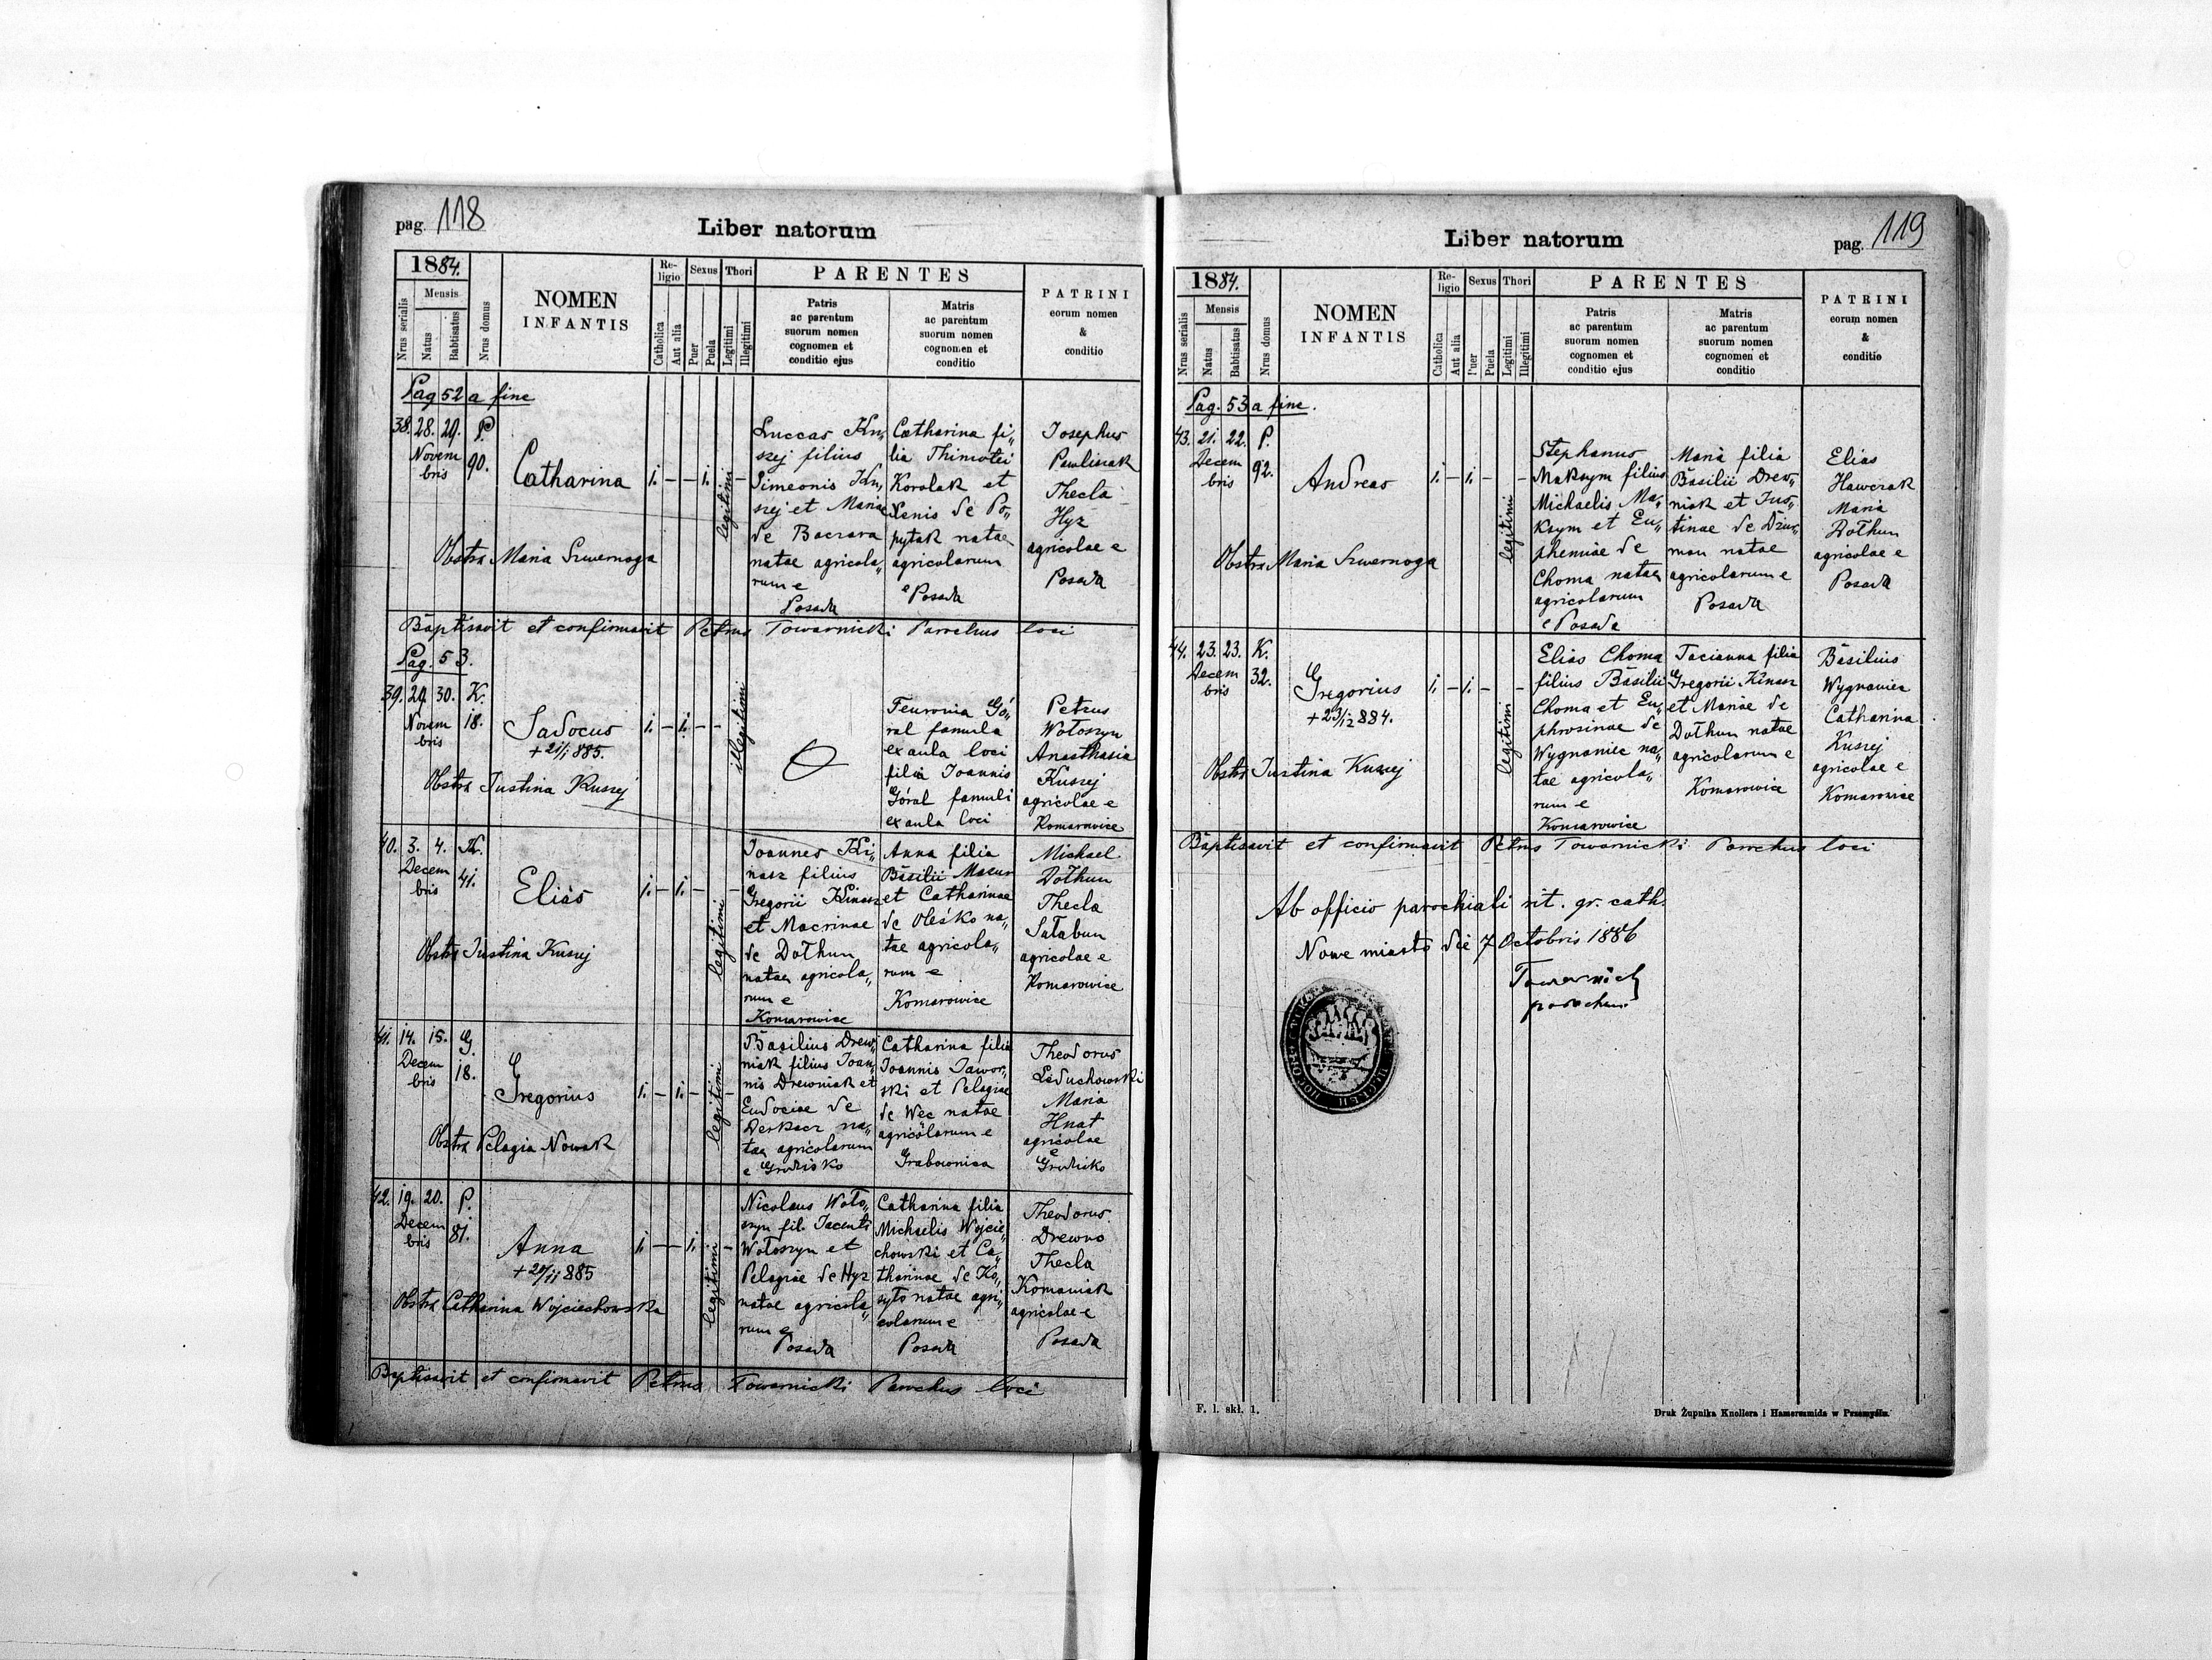 pag. 118
Liber natorum
1884.
Mensis
Nrus serialis
Natus
Babtisatus
Nrus domus
NOMEN
INFANTIS
Re-
ligio
Catholica
Aut alia
Sexus
Puer
Puela
Thori
Legitimi
Illegitimi
PARENTES
Patris
ac parentum
suorum nomen
cognomen et
conditio ejus
Matris
ac parentum
suorum nomen
cognomen et
conditio
PATRINI
eorum nomen
&
conditio
Pag 52 a fine
38. 28. 29. P.
Novem
bris 90.
Catharina
1. – – 1. –
legitimi
Obstx Maria Szwernoga
Luccas Ku„
szej filius
Simeonis Ku„
szej et Mariae
de Baczara
natae agricola„
rum e
Posada
Catharina fi„
lia Thimotei
Korolak et
Xenis de Po„
pytak natae
agricolarum
e Posada
Josephus
Pawliszak
Thecla
Hyz
agricolae e
Posada
Baptisavit et confirmavit Petrus Towarnicki Parochus loci
Pag. 53.
39. 29. 30. K.
Novem 18.
bris
Sadocus
+ 21/1 885.
1. – 1. – –
illegitimi
Obstx Justina Kuszej
Feuronia Gó„
ral famula
ex aula loci
filia Joannis
Góral famuli
ex aula loci
Petrus
Wołoszyn
Anasthasia
Kuszej
agricolae e
Komarowice
40. 3. 4. K.
Decem
bris 41.
Elias
1. – 1. – –
legitimi
Obstx Justina Kuszej
Joannes Ki„
nasz filius
Gregorii Kinasz
et Macrinae
de Dołhun
natae agricola„
rum e
Komarowice
Anna filia
Basilii Mazur
et Catharinae
de Oleśko na„
tae agricola„
rum e
Komarowice
Michael
Dołhun
Thecla
Sałabun
agricolae e
Komarowice
41. 14. 15. G.
Decem
bris 18.
Gregorius
1. – 1. – –
legitimi
Obstx Pelagia Nowak
Basilius Drew„
niak filius Joan„
nis Drewniak et
Eudociae de
Derkacz na„
tae agricolarum
e Grodzisko
Catharina filia
Joannis Jawor„
ski et Pelagiae
de Wec natae
agricolarum e
Grabownica
Theodorus
Leduchowski
Maria
Hnat
agricolae
e
Grodzisko
42. 19. 20. P.
Decem
bris 81.
Anna
1. – 1. – –
legitimi
Obstx Catharina Wojciechowska
Nicolaus Woło„
szyn fil. Jacenti
Wołoszyn et
Pelagiae de Hyz
natae agricola„
rum e
Posada
Catharina filia
Michaelis Wojcie„
chowski et Ca„
tharinae de Ko„
zyto natae agri„
colarum e
Posada
Theodorus
Drewno
Thecla
Komaniak
agricolae e
Posada
Baptisavit et confirmavit Petrus Towarnicki Parochus loci
Liber natorum
pag. 119
1884.
Mensis
Nrus serialis
Natus
Babtisatus
Nrus domus
NOMEN
INFANTIS
Re-
ligio
Catholica
Aut alia
Sexus
Puer
Puela
Thori
Legitimi
Illegitimi
PARENTES
Patris
ac parentum
suorum nomen
cognomen et
conditio ejus
Matris
ac parentum
suorum nomen
cognomen et
conditio
PATRINI
eorum nomen
&
conditio
Pag. 53 a fine.
43. 21. 22. P.
Decem
bris 92.
Andreas
1. – 1. – –
legitimi
Obstx Maria Szwernoga
Stephanus
Maksym filius
Michaelis Ma„
ksym et Eu„
phemiae de
Choma natae
agricolarum
e Posada
Maria filia
Basilii Drew„
niak et Jus„
tinae de Dzus„
man natae
agricolarum e
Posada
Elias
Hawczak
Maria
Dołhun
agricolae e
Posada
44. 23. 23. K.
Decem
bris 32.
Gregorius
+ 23/12 884.
1. – 1. – –
legitimi
Obstx Justina Kuszej
Elias Choma
filius Basilii
Choma et Eu„
phrosinae de
Wygnaniec na„
tae agricola„
rum e
Komarowice
Tacianna filia
Gregorii Kinasz
et Mariae de
Dołhun natae
agricolarum e
Komarowice
Basilius
Wygnaniec
Catharina
Kuszej
agricolae e
Komarowice
Baptisavit et confirmavit Petrus Towarnicki Parochus loci
Ab officio parochiali rit. gr. cath.
Nowe miasto die 7 Octobris 1886
Towarnicki
parochus
F. l. skł. 1.
Druk Żupnika Knollera i Hamerszmida w Przemyślu.